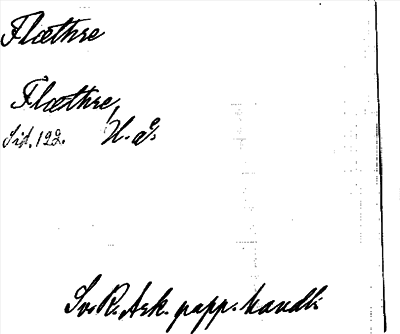 Flæthre
Flæthre,
Sid. 122. H. a S.
Sv. R. Ark. papp. handl.